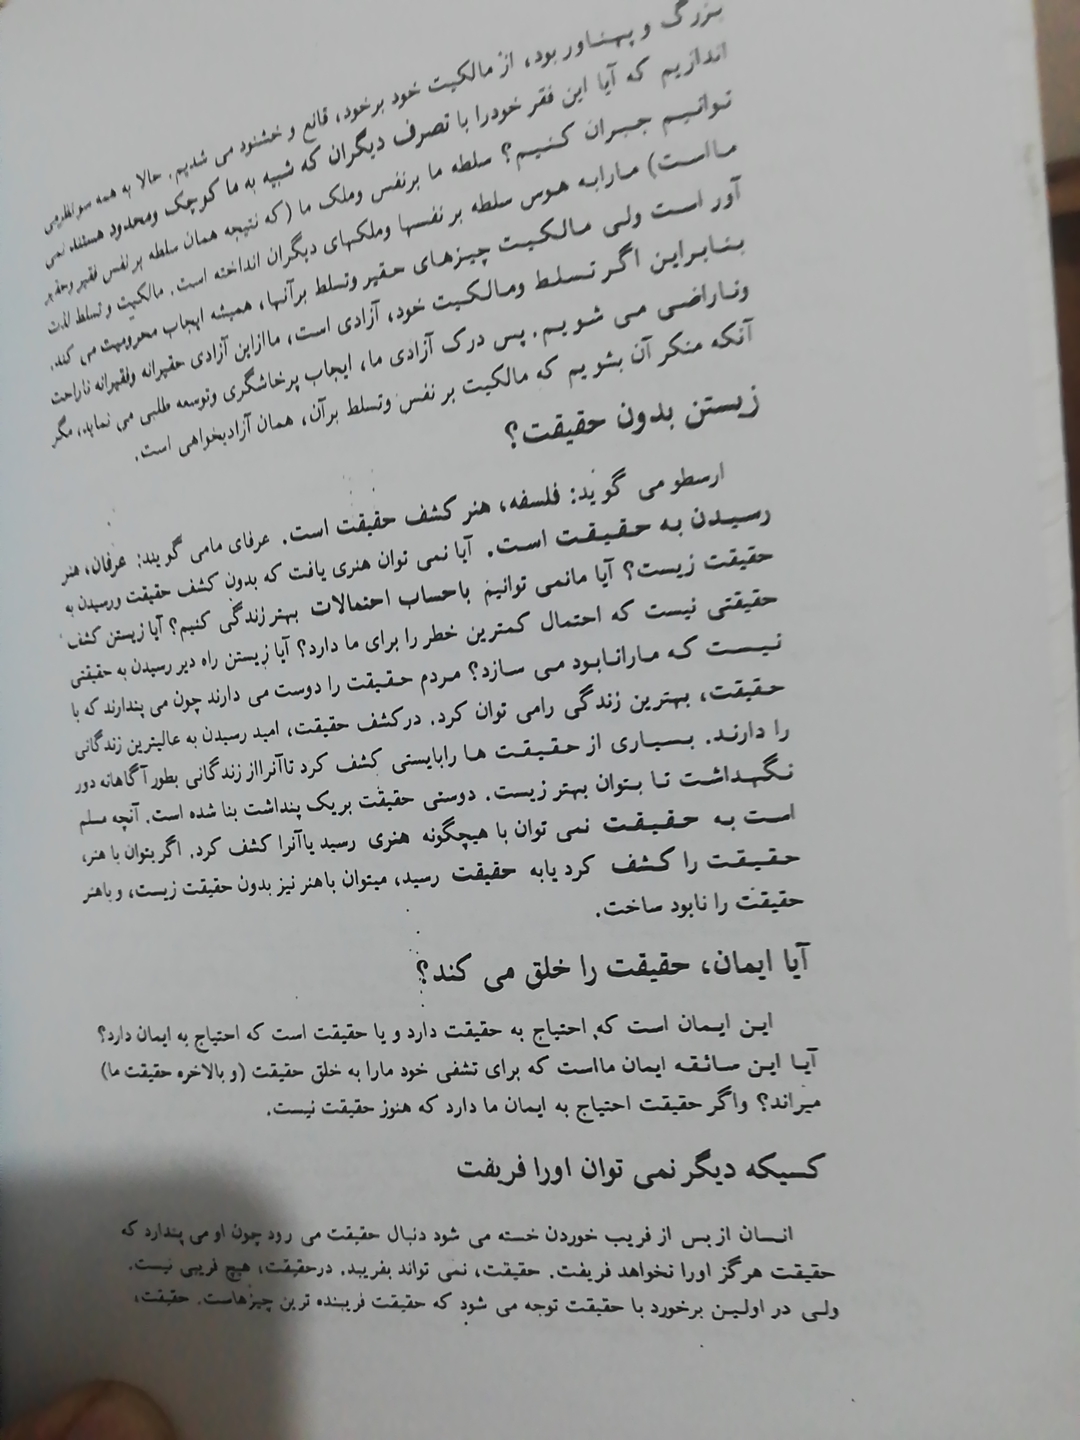 بزرگ و پهناور بود، از مالکیت خود برخود، قانع و خشنود می شدیم. حالا به همه سو نظر می
اندازیم که آیا این فقر خودرا با تصرف دیگران که شبیه به ما کوچک ومحدود هستند نمی
توانیم جبران کنیم؟ سلطه ما برنفس وملک ما (که نتیجه همان سلطه بر نفس فقیر وحقیر
مااست) مارابه هوس سلطه بر نفسها وملکهای دیگران انداخته است. مالکیت و تسلط لذت
آور است ولی مالکیت چیزهای حقیر وتسلط برآنها، همیشه ایجاب محرومیت می کند.
بنابراین اگر تسلط ومالکیت خود، آزادی است، ماازاین آزادی حقیرانه وفقیرانه ناراحت
وناراضی می شویم. پس درک آزادی ما، ایجاب پرخاشگری وتوسعه طلبی می نماید، مگر
آنکه منکر آن بشویم که مالکیت بر نفس وتسلط برآن، همان آزادیخواهی است.
زیستن بدون حقیقت؟
ارسطو می گوید: فلسفه، هنر کشف حقیقت است. عرفای مامی گویند: عرفان، هنر
رسیدن به حقیقت است. آیا نمی توان هنری یافت که بدون کشف حقیقت ورسیدن به
حقیقت زیست؟ آیا مانمی توانیم باحساب احتمالات بهتر زندگی کنیم؟ آیا زیستن کشف
حقیقتی نیست که احتمال کمترین خطر را برای ما دارد؟ آیا زیستن راه دیر رسیدن به حقیقتی
نیست که مارانابود می سازد؟ مردم حقیقت را دوست می دارند چون می پندارند که با
حقیقت، بهترین زندگی رامی توان کرد. درکشف حقیقت، امید رسیدن به عالیترین زندگانی
را دارند. بسیاری از حقیقت ها رابایستی کشف کرد تاآنرااز زندگانی بطور آگاهانه دور
نگهداشت تا بتوان بهتر زیست. دوستی حقیقت بریک پنداشت بنا شده است. آنچه مسلم
است به حقیقت نمی توان با هیچگونه هنری رسید یاآنرا کشف کرد. اگر بتوان با هنر،
حقیقت را کشف کرد یابه حقیقت رسید، میتوان باهنر نیز بدون حقیقت زیست، و باهنر
حقیقت را نابود ساخت.
آیا ایمان، حقیقت را خلق می کند؟
این ایمان است که احتیاج به حقیقت دارد و یا حقیقت است که احتیاج به ایمان دارد؟
آیا این سائقه ایمان مااست که برای تشفی خود مارا به خلق حقیقت (و بالاخره حقیقت ما)
میراند؟ واگر حقیقت احتیاج به ایمان ما دارد که هنوز حقیقت نیست.
کسیکه دیگر نمی توان اورا فریفت
انسان از بس از فریب خوردن خسته می شود دنبال حقیقت می رود چون او می پندارد که
حقیقت هرگز اورا نخواهد فریفت. حقیقت، نمی تواند بفریبد. درحقیقت، هیچ فریبی نیست.
ولی در اولین برخورد با حقیقت توجه می شود که حقیقت فریبنده ترین چیزهاست. حقیقت،